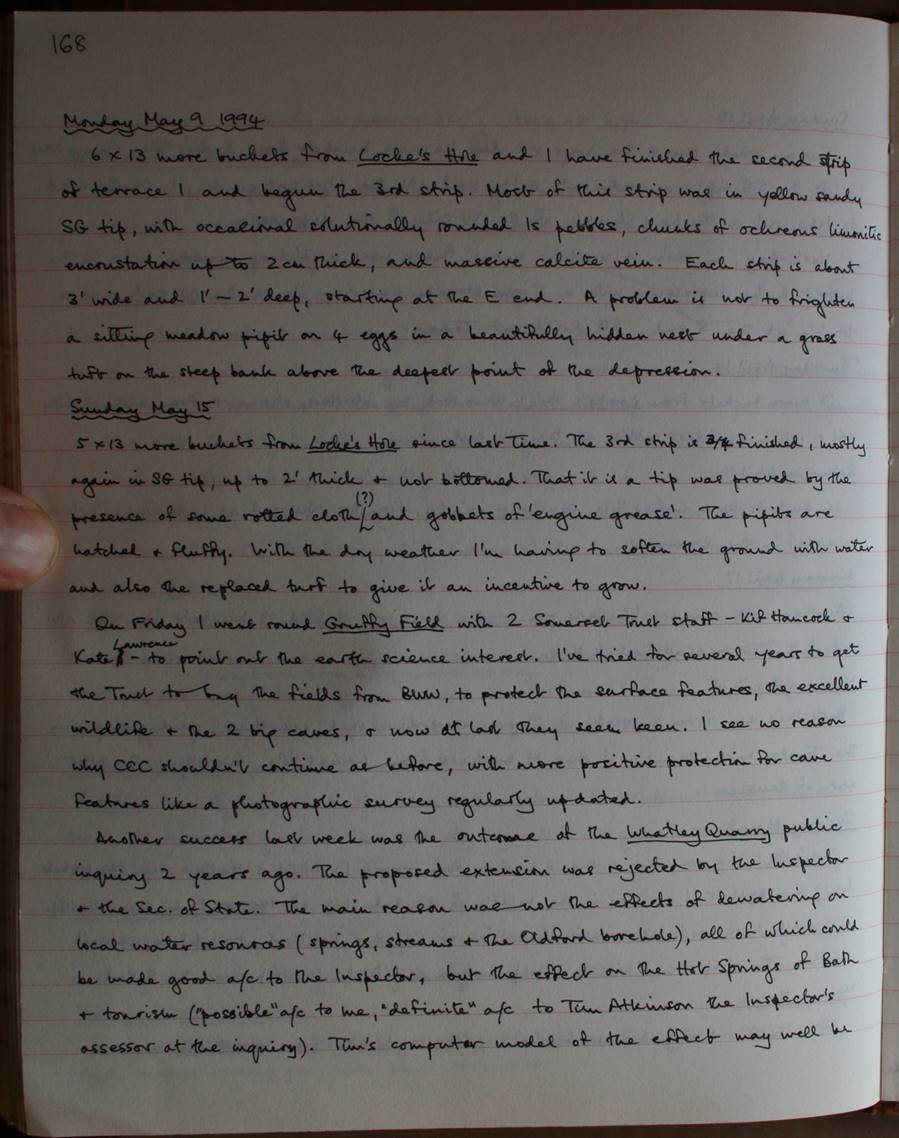 168
Monday May 9 1994
6 x 13 more buckets from Locke's Hole and I have finished the second strip
of terrace 1 and begun the 3rd strip. Most of this strip was in yellow sandy
SG tip, with occasional solutionally rounded ls pebbles, chunks of ochreous limonitic
encrustation up to 2cm thick, and massive calcite vein. Each strip is about
3' wide and 1' - 2' deep, starting at the E end. A problem is not to frighten
a sitting meadow pipit on 4 eggs in a beautifully hidden nest under a grass
tuft on the steep bank above the deepest point of the depression.
Sunday May 15
5 x 13 more buckets from Locke's Hole since last time. The 3rd strip is 3/4 finished, mostly
again in SG tip, up to 2' thick + not bottomed. That it is a tip was proved by the
(?)
presence of some rotted cloth and gobbets of 'engine grease'. The pipits are
hatched + fluffy. With the dry weather I'm having to soften the ground with water
and also the replaced turf to give it an incentive to grow.
On Friday I went round Gruffy Field with 2 Somerset Trust staff - Kif Hancock +
Lawrence
Kate - to point out the earth science interest. I've tried for several years to get
the Trust to buy the fields from BWW, to protect the surface features, the excellent
wildlife + the 2 big caves, + now at last they seem keen. I see no reason
why CCC shouldn't continue as before, with more positive protection for cave
features like a photographic survey regularly updated.
Another success last week was the outcome of the Whatley Quarry public
inquiry 2 years ago. The proposed extension was rejected by the Inspector
+ the Sec. of State. The main reason was not the effects of dewatering on
local water resources (springs, streams + the Oldford borehole), all of which could
be made good a/c to the Inspector, but the effect on the Hot Springs of Bath
+ tourism ("possible" a/c to me, "definite" a/c to Tim Atkinson the Inspector's
assessor at the inquiry). Tim's computer model of the effect may well be